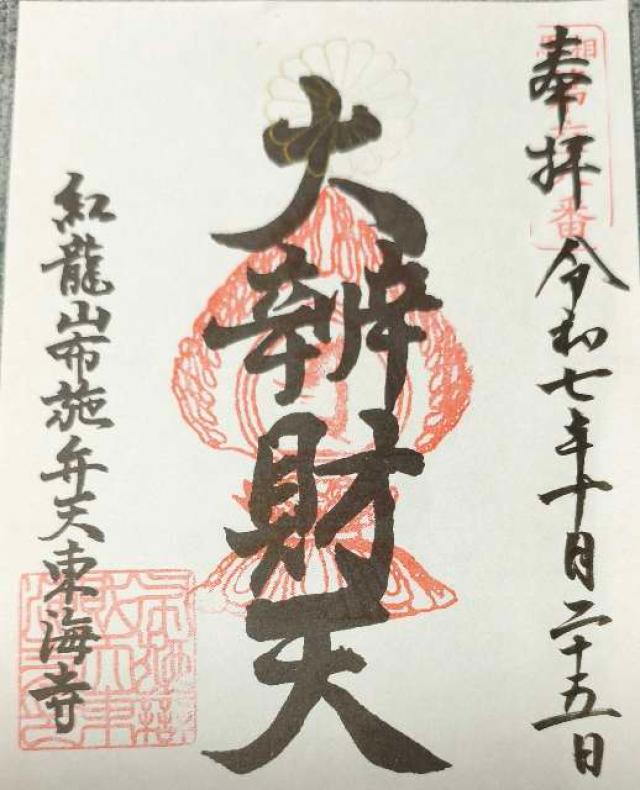 奉拝 令和七年十月二十五日
大辨財天
紅龍山布施弁天東海寺